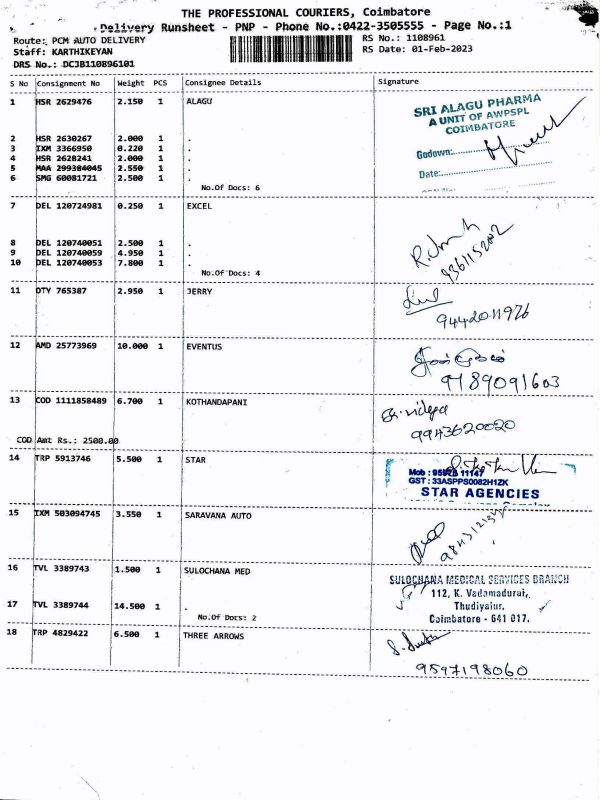 THE PROFESSIONAL COURIERS, Coimbatore
Delivery Runsheet - PNP - Phone No.:0422-3505555 - Page No.:1
Route: PCM AUTO DELIVERY RS No.: 1108961
Staff: KARTHIKEYAN RS Date: 01-Feb-2023
DRS No.: DCJB110896101
S No Consignment No Weight PCS Consignee Details Signature
1 HSR 2629476 2.150 1 ALAGU
SRI ALAGU PHARMA
A UNIT OF AWPSPL
COIMBATORE
2 HSR 2630267 2.000 1 .
3 IXM 3366950 0.220 1 .
Godown:
4 HSR 2628241 2.000 1 .
5 MAA 299384045 2.550 1 .
Date:
6 SMG 60081721 2.500 1 .
No.Of Docs: 6
7 DEL 120724981 0.250 1 EXCEL
8 DEL 120740051 2.500 1 .
9 DEL 120740059 4.950 1 .
10 DEL 120740053 7.800 1 .
No.Of Docs: 4
11 OTY 765387 2.950 1 JERRY
9442011976
12 AMD 25773969 10.000 1 EVENTUS
9189091603
13 COD 1111858489 6.700 1 KOTHANDAPANI
9943620020
COD Amt Rs.: 2500.00
14 TRP 5913746 5.500 1 STAR
Mob : 11147
GST : 33ASPPS0082H1ZK
STAR AGENCIES
15 IXM 503094745 3.550 1 SARAVANA AUTO
16 TVL 3389743 1.500 1 SULOCHANA MED
SULOCHANA MEDICAL SERVICES BRANCH
112, K. Vadamadurai,
17 TVL 3389744 14.500 1 .
Thudiyalur,
No.Of Docs: 2
Coimbatore - 641 017.
18 TRP 4829422 6.500 1 THREE ARROWS
9597198060